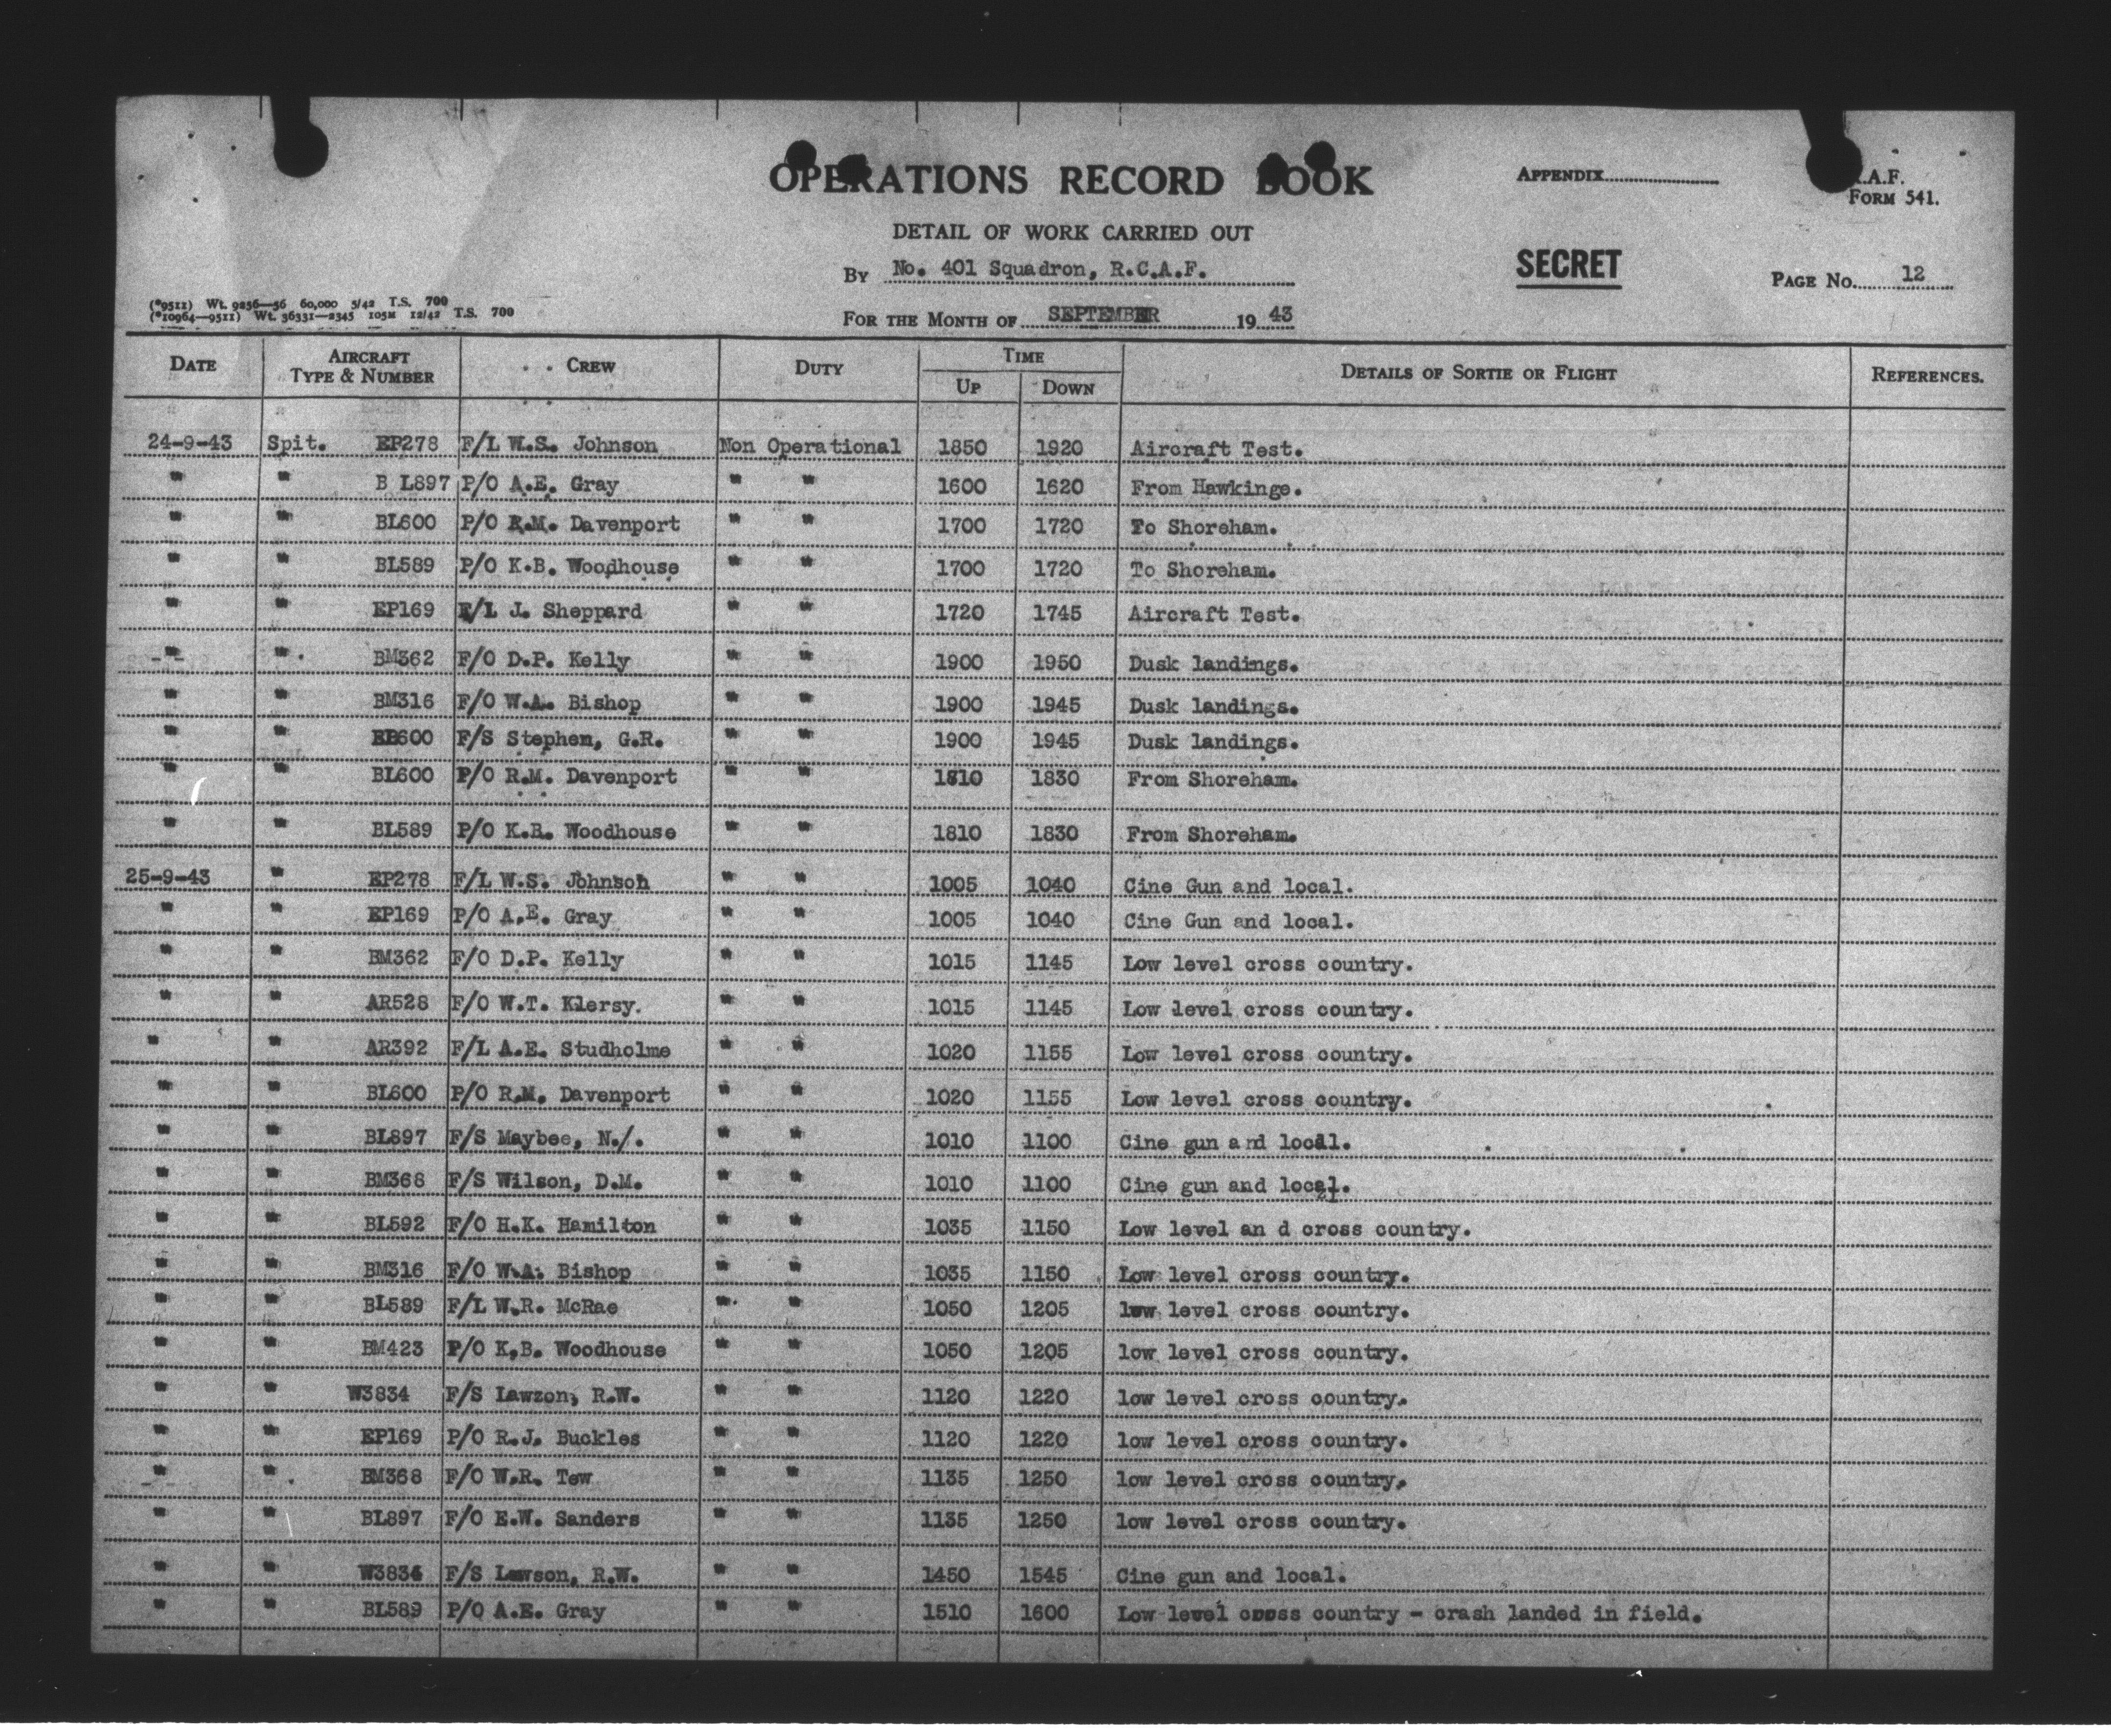 OPERATIONS RECORD BOOK
APPENDIX
R.A.F.
FORM 541.
DETAIL OF WORK CARRIED OUT
SECRET
By No. 401 Squadron, R.C.A.F.
PAGE No. 12
(*9511) Wt. 9256—56 60,000 5/42 T.S. 700
(*10964—9511) Wt. 36331—2345 105M 12/42 T.S. 700
FOR THE MONTH OF SEPTEMBER 19 43
DATE AIRCRAFT TYPE & NUMBER CREW DUTY TIME UP DOWN DETAILS OF SORTIE OR FLIGHT REFERENCES.
24-9-43 Spit. EP278 F/L W.S. Johnson Non Operational 1850 1920 Aircraft Test.
" " B L897 P/O A.E. Gray " " 1600 1620 From Hawkinge.
" " BL600 P/O R.M. Davenport " " 1700 1720 To Shoreham.
" " BL589 P/O K.B. Woodhouse " " 1700 1720 To Shoreham.
" " EP169 F/L J. Sheppard " " 1720 1745 Aircraft Test.
" " BM362 F/O D.P. Kelly " " 1900 1950 Dusk landings.
" " BM316 F/O W.A. Bishop " " 1900 1945 Dusk landings.
" " 600 F/S Stephen, G.R. " " 1900 1945 Dusk landings.
" " BL600 P/O R.M. Davenport " " 1810 1830 From Shoreham.
" " BL589 P/O K.B. Woodhouse " " 1810 1830 From Shoreham.
25-9-43 " EP278 F/L W.S. Johnson " " 1005 1040 Cine Gun and local.
" " EP169 P/O A.E. Gray " " 1005 1040 Cine Gun and local.
" " BM362 F/O D.P. Kelly " " 1015 1145 Low level cross country.
" " AR528 F/O W.T. Klersy. " " 1015 1145 Low level cross country.
" " AR392 F/L A.E. Studholme " " 1020 1155 Low level cross country.
" " BL600 P/O R.M. Davenport " " 1020 1155 Low level cross country.
" " BL897 F/S Maybee, N./. " " 1010 1100 Cine gun and local.
" " BM368 F/S Wilson, D.M. " " 1010 1100 Cine gun and local.
" " BL592 F/O H.K. Hamilton " " 1035 1150 Low level an d cross country.
" " BM316 F/O W.A. Bishop " " 1035 1150 Low level cross country.
" " BL589 F/L W.R. McRae " " 1050 1205 low level cross country.
" " BM423 P/O K.B. Woodhouse " " 1050 1205 low level cross country.
" " W3834 F/S Lawzon, R.W. " " 1120 1220 low level cross country.
" " EP169 P/O R.J. Buckles " " 1120 1220 low level cross country.
" " BM368 F/O W.R. Tew " " 1135 1250 low level cross country.
" " BL897 F/O E.W. Sanders " " 1135 1250 low level cross country.
" " W3834 F/S Lawson, R.W. " " 1450 1545 Cine gun and local.
" " BL589 P/O A.E. Gray " " 1510 1600 Low level cross country - crash landed in field.